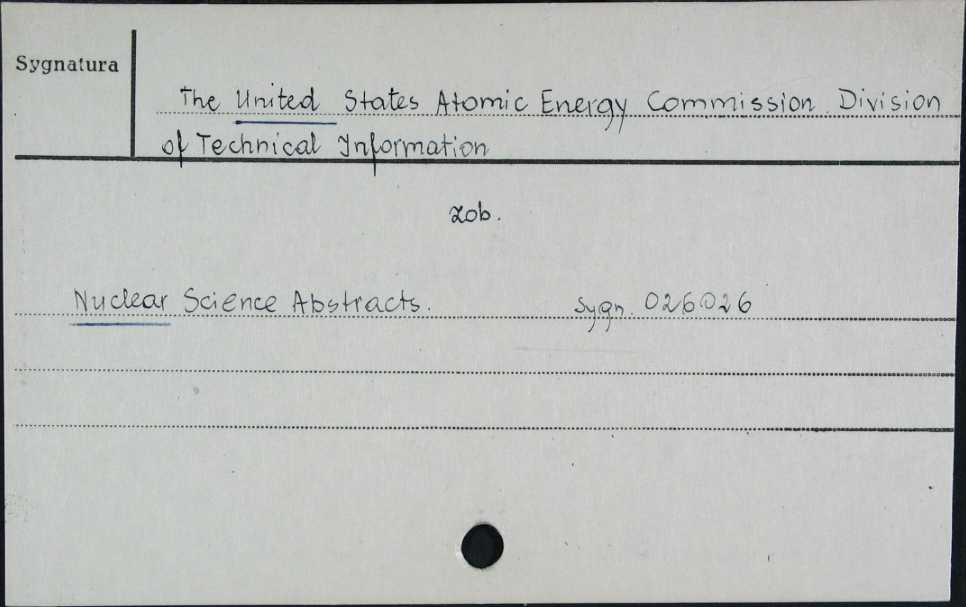 Sygnatura
The United States Atomic Energy Commission. Division
of Technical Information
zob.
Nuclear Science Abstracts. Sygn. 026026